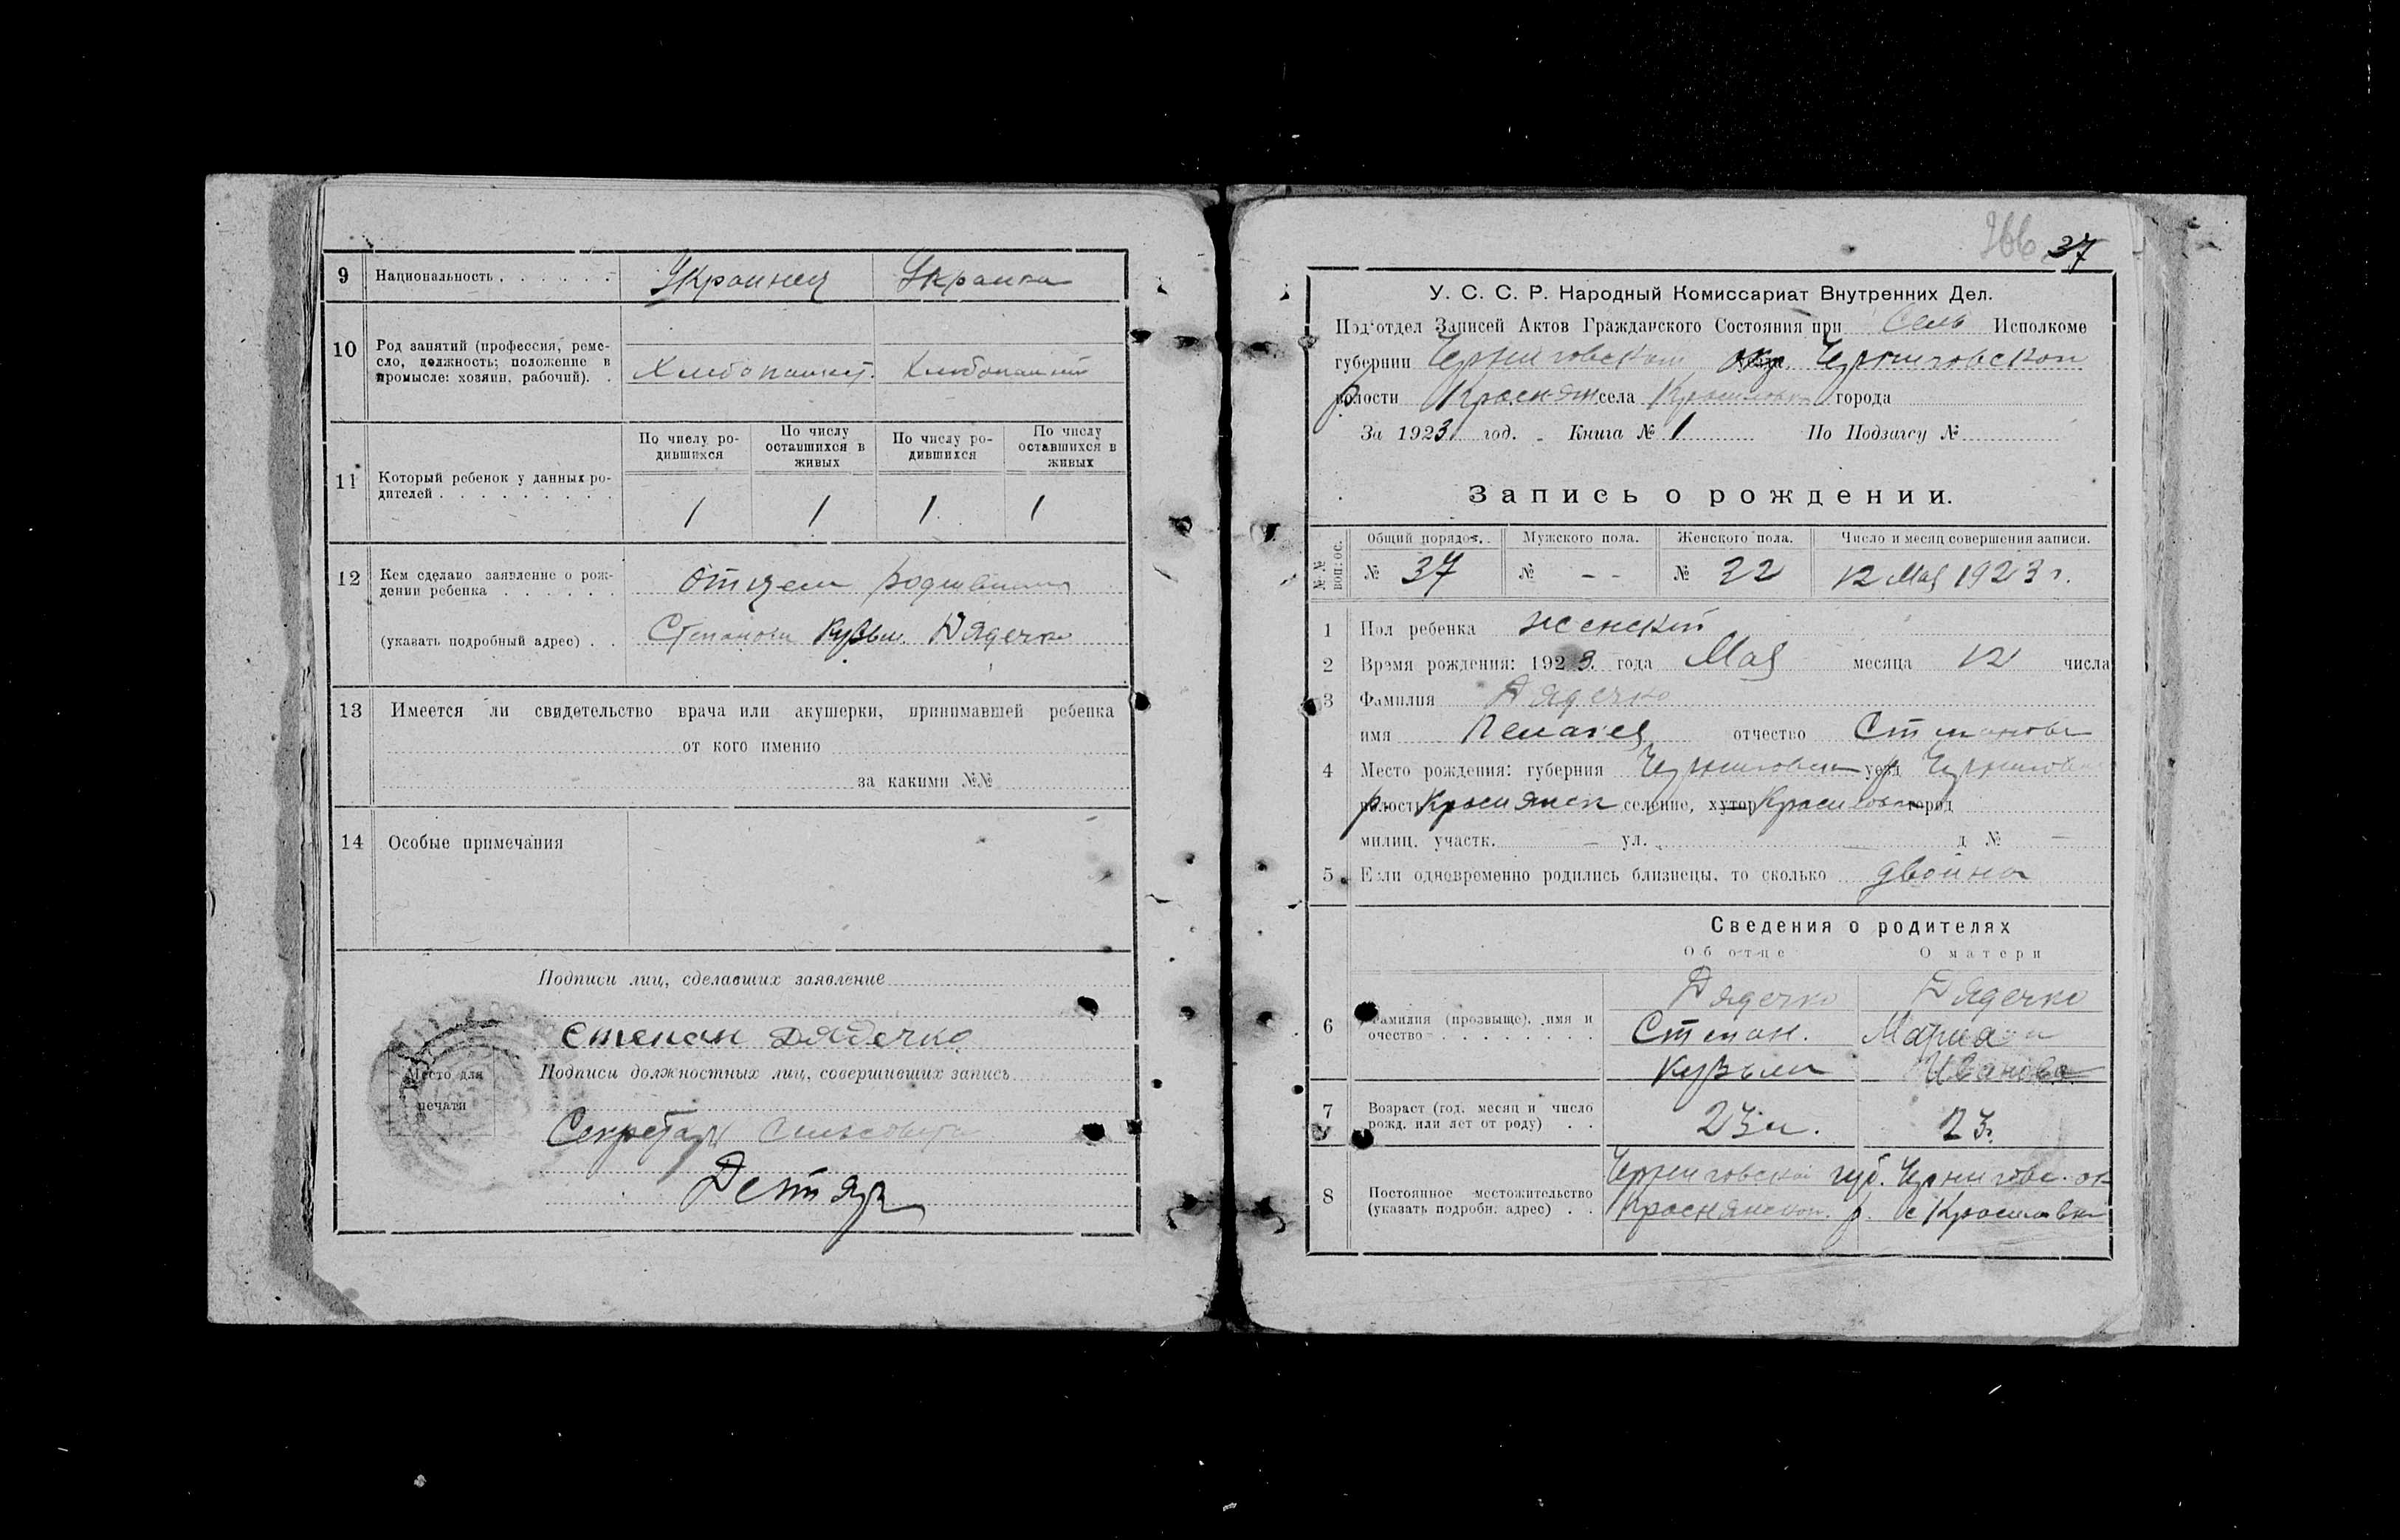 9 Национальность Украинец Украинка
10 Род занятий (профессия, реме-
сло, должность; положение в
промысле: хозяин, рабочий). Хлебопашец. Хлебопашец
11 Который ребенок у данных ро-
дителей
По числу ро-
дившихся
По числу
оставшихся в
живых
По числу ро-
дившихся
По числу
оставшихся в
живых
1 1 1 1
12 Кем сделано заявление о рож-
дении ребенка отцем
(указать подробный адрес) Кузьм. Дядечко
13 Имеется ли свидетельство врача или акушерки, принимавшей ребенка
от кого именно
за какими №№
14 Особые примечания
Подписи лиц, сделавших заявление
Степан Дядечко
Подписи должностных лиц, совершивших запись
Место для
печати
Секретарь
Дегтяр
166 37
У. С. С. Р. Народный Комиссариат Внутренних Дел.
Под‘отдел Записей Актов Гражданского Состояния при Сель Исполкоме
губернии Черниговской окр. Черниговской
волости Краснян села города
За 1923 год. Книга № 1 По Подзагсу №
Запись о рождении.
№№ вопрос.
Общий порядок. Мужского пола. Женского пола. Число и месяц совершения записи.
№ 37 № - - № 22 12 Мая 1923 г.
1 Пол ребенка женский
2 Время рождения: 1923. года Мая месяца 12 числа
3 Фамилия Дядечко
имя Пелагея отчество Степанова
4 Место рождения: губерния уезд
волость селение, хутор город
милиц. участк. – ул. д № —
5 Если одновременно родились близнецы, то сколько двойня
Сведения о родителях
Об отце О матери
6 Фамилия (прозвыще), имя и
очество
Дядечко Дядечко
Степан. Мария
Кузьм Иванова
7 Возраст (год, месяц и число
рожд. или лет от роду) 23 л. 23.
8 Постоянное местожительство
(указать подробн. адрес)
Черниговской губ. Чернигове. ок
Краснянской. р. с Красиловка